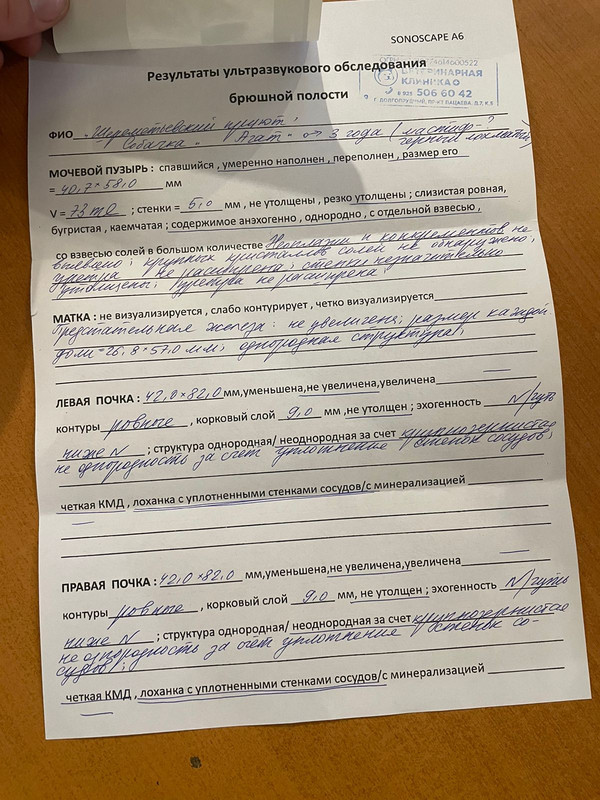 SONOSCAPE A6
Результаты ультразвукового обследования
брюшной полости
4614600522
ВЕТЕРИНАРНАЯ
КЛИНИКА
8 929 506 60 42
Г. ДОЛГОПРУДНЫЙ, ПР-КТ ПАЦАЕВА, Д.7, К.
ФИО "Шереметьевский приют"
Собачка - "Агат" - ♂ 3 года (мастиф-?
черный лохматый
МОЧЕВОЙ ПУЗЫРЬ : спавшийся , умеренно наполнен , переполнен , размер его
= 40,7 × 58,0 мм
V = 73 ml ; стенки = 6,0 мм , не утолщены , резко утолщены ; слизистая ровная,
бугристая , каемчатая ; содержимое анэхогенно , однородно , с отдельной взвесью ,
со взвесью солей в большом количестве Неоплазии и конкрементов не
выявлено; крупных кристаллов солей не обнаружено;
уретра не расширена; стенки незначительно
утолщены; уретра не расширена;
МАТКА : не визуализируется , слабо контурирует , четко визуализируется
Предстательная железа: не увеличена; размер каждой
доли = 26,8 × 57,0 мм; однородная структура;
ЛЕВАЯ ПОЧКА : 42,0 × 82,0 мм,уменьшена,не увеличена,увеличена
контуры ровные , корковый слой 9,0 мм ,не утолщен ; эхогенность N/чуть
ниже N ; структура однородная/ неоднородная за счет крупнозернистая
не однородность за счёт уплотнения стенок сосудов;
четкая КМД , лоханка с уплотненными стенками сосудов/с минерализацией
ПРАВАЯ ПОЧКА : 42,0 × 82,0 мм,уменьшена,не увеличена,увеличена
контуры ровные , корковый слой 9,0 мм, не утолщен ; эхогенность N/чуть
ниже N ; структура однородная/ неоднородная за счет крупнозернистая
не однородность за счёт уплотнения стенок со-
судов/;
четкая КМД , лоханка с уплотненными стенками сосудов/с минерализацией